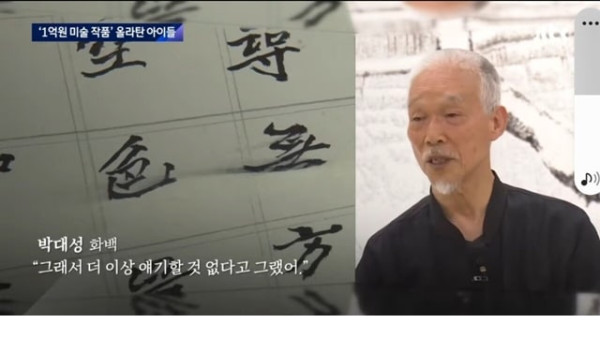 '1억원 미술 작품' 올라탄 아이들
尋
色 無
方
박대성 화백
“그래서 더 이상 얘기할 것 없다고 그랬어.”